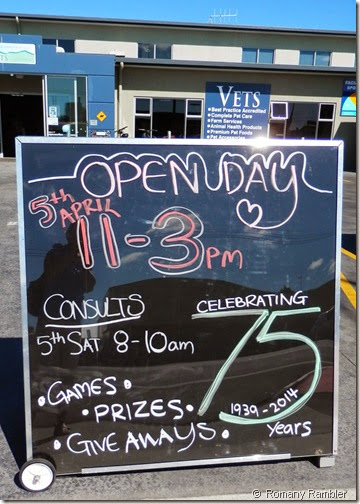 VETS
• Best Practice Accredited
• Complete Pet Care
• Farm Services
• Animal Health Products
• Premium Pet Foods
• Pet Accessories
OPEN DAY
5th APRIL
11-3pm
CONSULTS
5th SAT 8-10am
CELEBRATING
75
1939-2014
Years
• GAMES •
• PRIZES •
• GIVEAWAYS •
© Romany Rambler